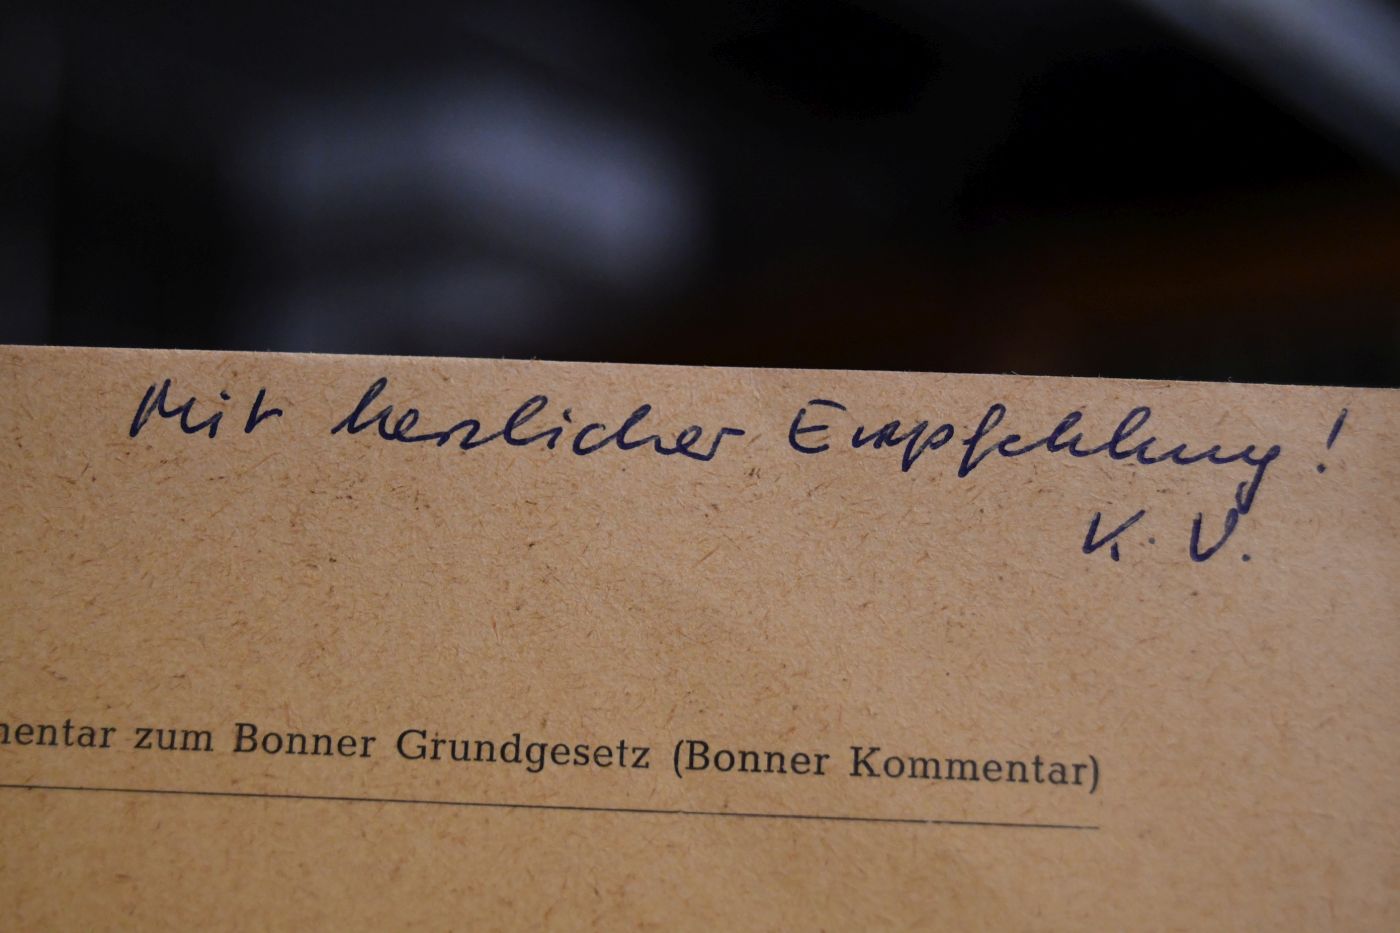 Mit herzlicher Empfehlung!
K. V.
mentar zum Bonner Grundgesetz (Bonner Kommentar)